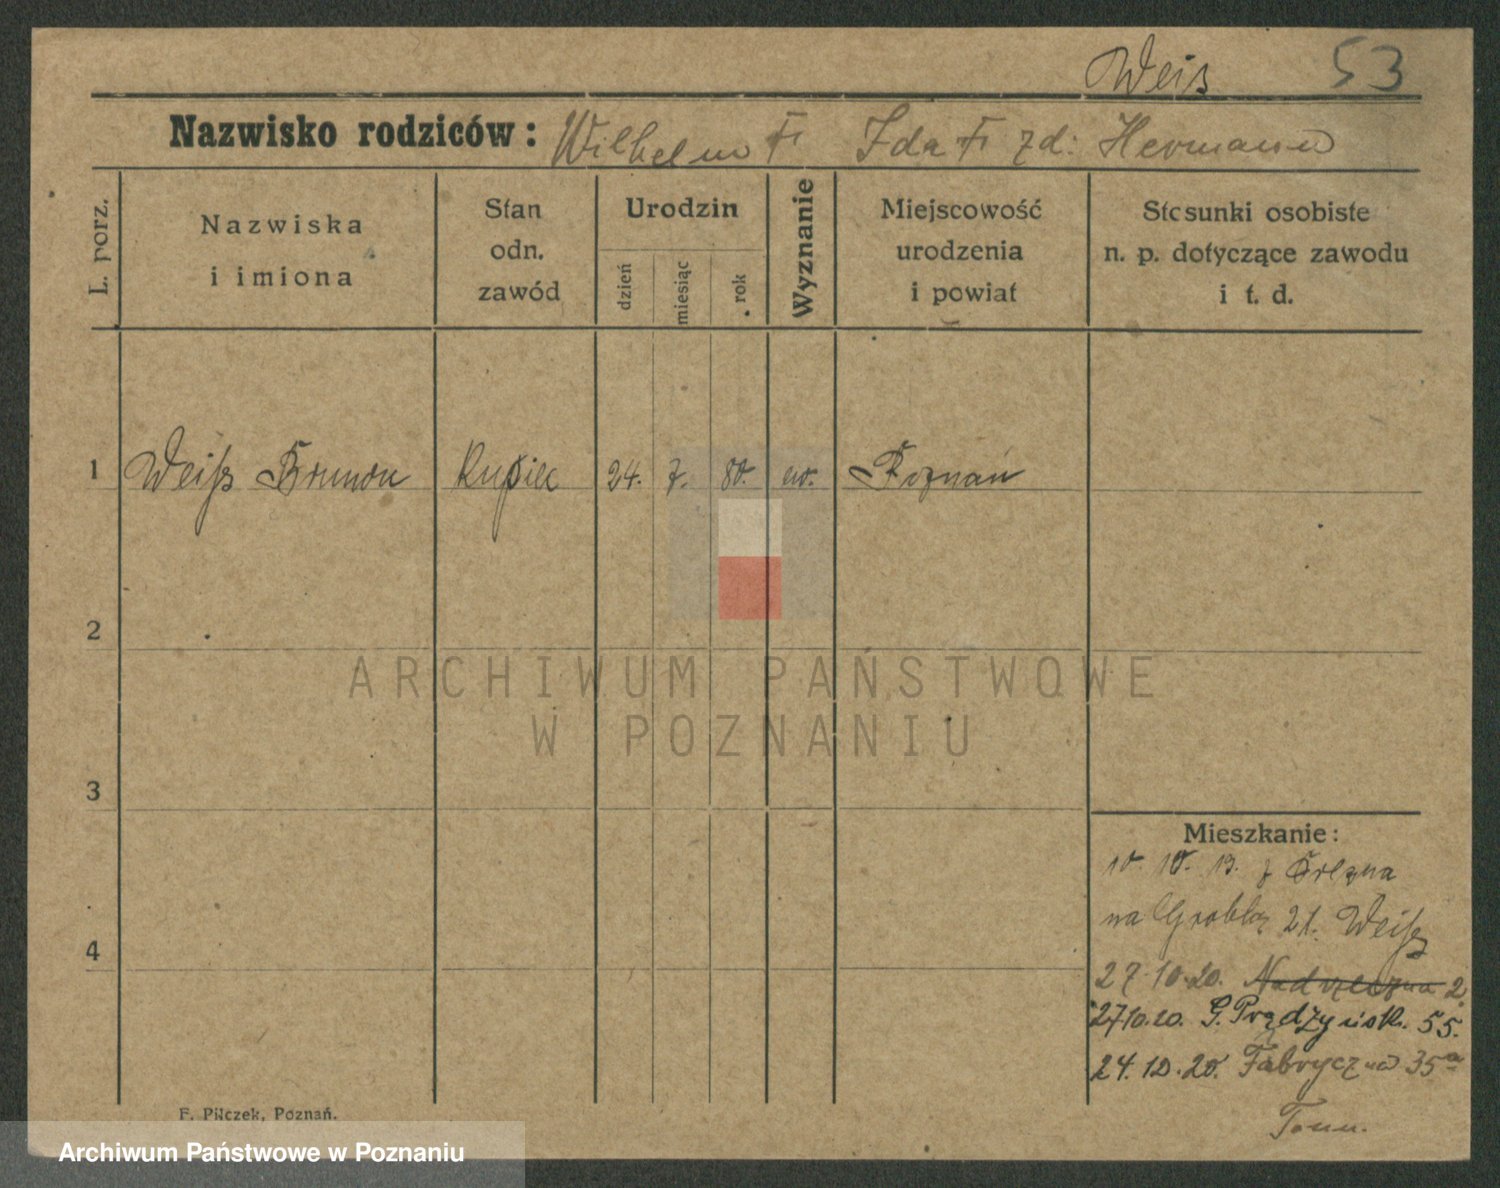 Weis 53
Nazwisko rodziców: Wilhelm Ida zd: Hermann
L. porz.
Nazwiska
i imiona
Stan
odn.
zawód
Urodzin
dzień
miesiąc
rok
Wyznanie
Miejscowość
urodzenia
i powiat
Stosunki osobiste
n. p. dotyczące zawodu
i t. d.
1 Weiß Brunon Kupiec 24. 7. 80. ew. Poznań
2
ARCHIWUM PAŃSTWOWE
W POZNANIU
3
Mieszkanie:
10. 10. 13.
na Grobla 21. Weiß
4
27 10.20. Nadrzeczna 2
27 10.20. G. Prądzyńsk. 55.
24. 12. 20. Fabryczna 35a
F. Pilczek, Poznań.
Archiwum Państwowe w Poznaniu